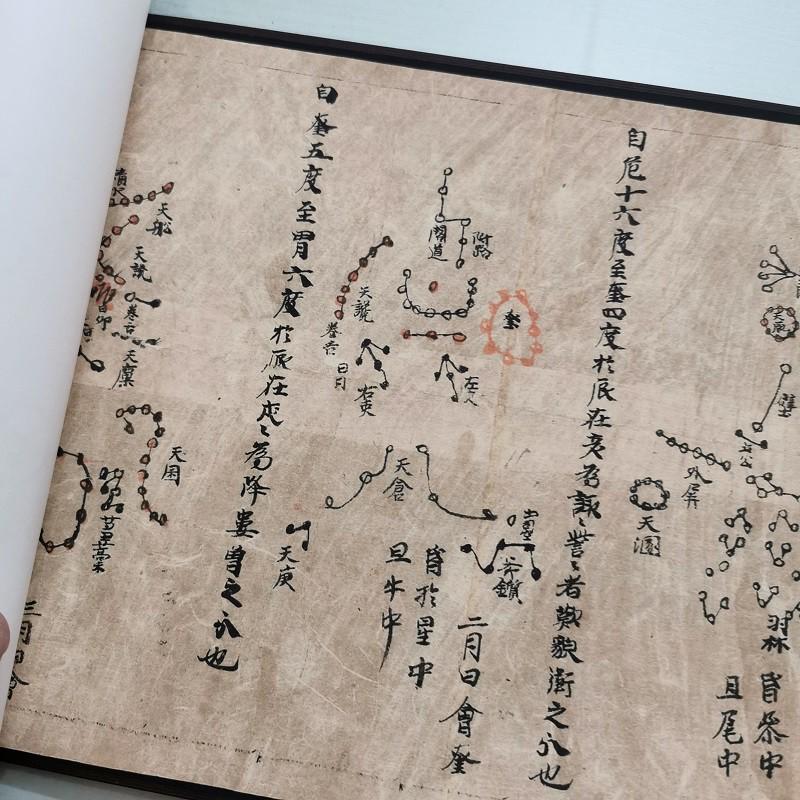 壁
土公
羽林
昏參中
旦尾中
外屏
天溷
自危十六度至奎四度於辰在亥為諏〻訾〻者歎貌衛之分也
奎
附路
閣道
左更
天讒
卷舌
右更
日月
天倉
鈇鑕
天庾
二月日會奎
昏於星中
旦牛中
自奎五度至胃六度於辰在戌〻為降婁魯之分也
天船
天讒
卷舌
天廩
天囷
芻藁
三月日會